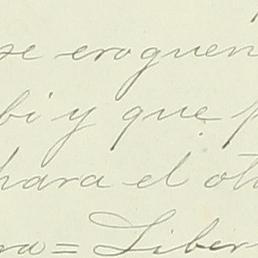 se eroguen
bi y que p
para el ot
ra = Liber